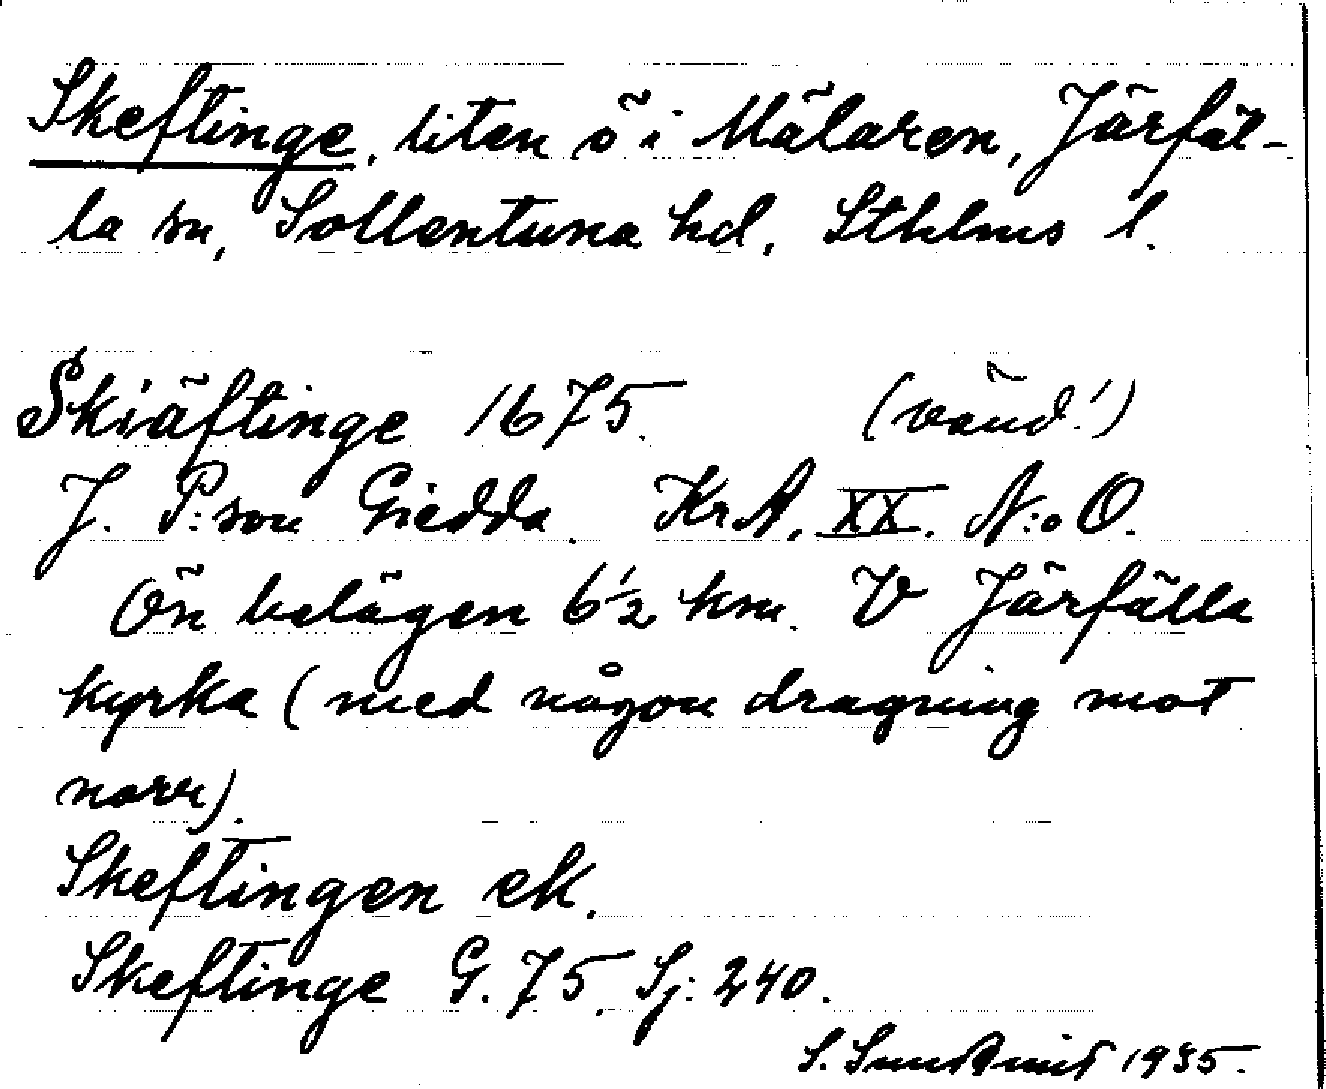 Skeftinge, liten ö i Mälaren, Järfäl-
la sn, Sollentuna hd, Sthlms l.
Skiäftinge 1675. (vänd!)
J. P:son Giedda. KrA. XX. N:o O.
Ön belägen 6 1/2 km. V Järfälla
kyrka (med någon dragning mot
norr).
Skeftingen ek.
Skeftinge G. 75, Sj: 240.
S. 1935.